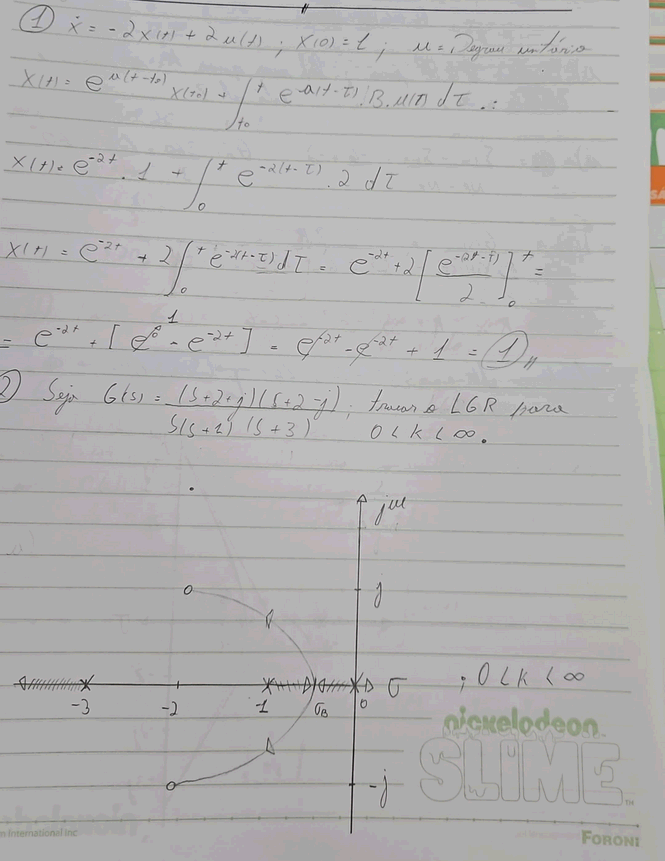 ① ẋ = -2x(t) + 2u(t) ; x(0) = 1 ; u = Degrau unitário
x(t) = e^{a(t-t₀)} x(t₀) + ∫_{t₀}^{t} e^{a(t-τ)}.B.u(τ) dτ ∴
x(t) = e^{-2t}.1 + ∫_0^t e^{-2(t-τ)}.2 dτ
x(t) = e^{-2t} + 2∫_0^t e^{-2(t-τ)} dτ = e^{-2t} + 2[e^{-2(t-τ)}/2]_0^t =
= e^{-2t} + [e^0 - e^{-2t}] = e^{-2t} - e^{-2t} + 1 = ①,,
1
② Seja G(s) = (s+2+j)(s+2-j) / s(s+1)(s+3) ; traçar o LGR para
0 < k < ∞.
jω
j
σ ; 0 < k < ∞
-3 -2 -1 σ_B 0
-j
nickelodeon
SLIME™
International Inc
FORONI